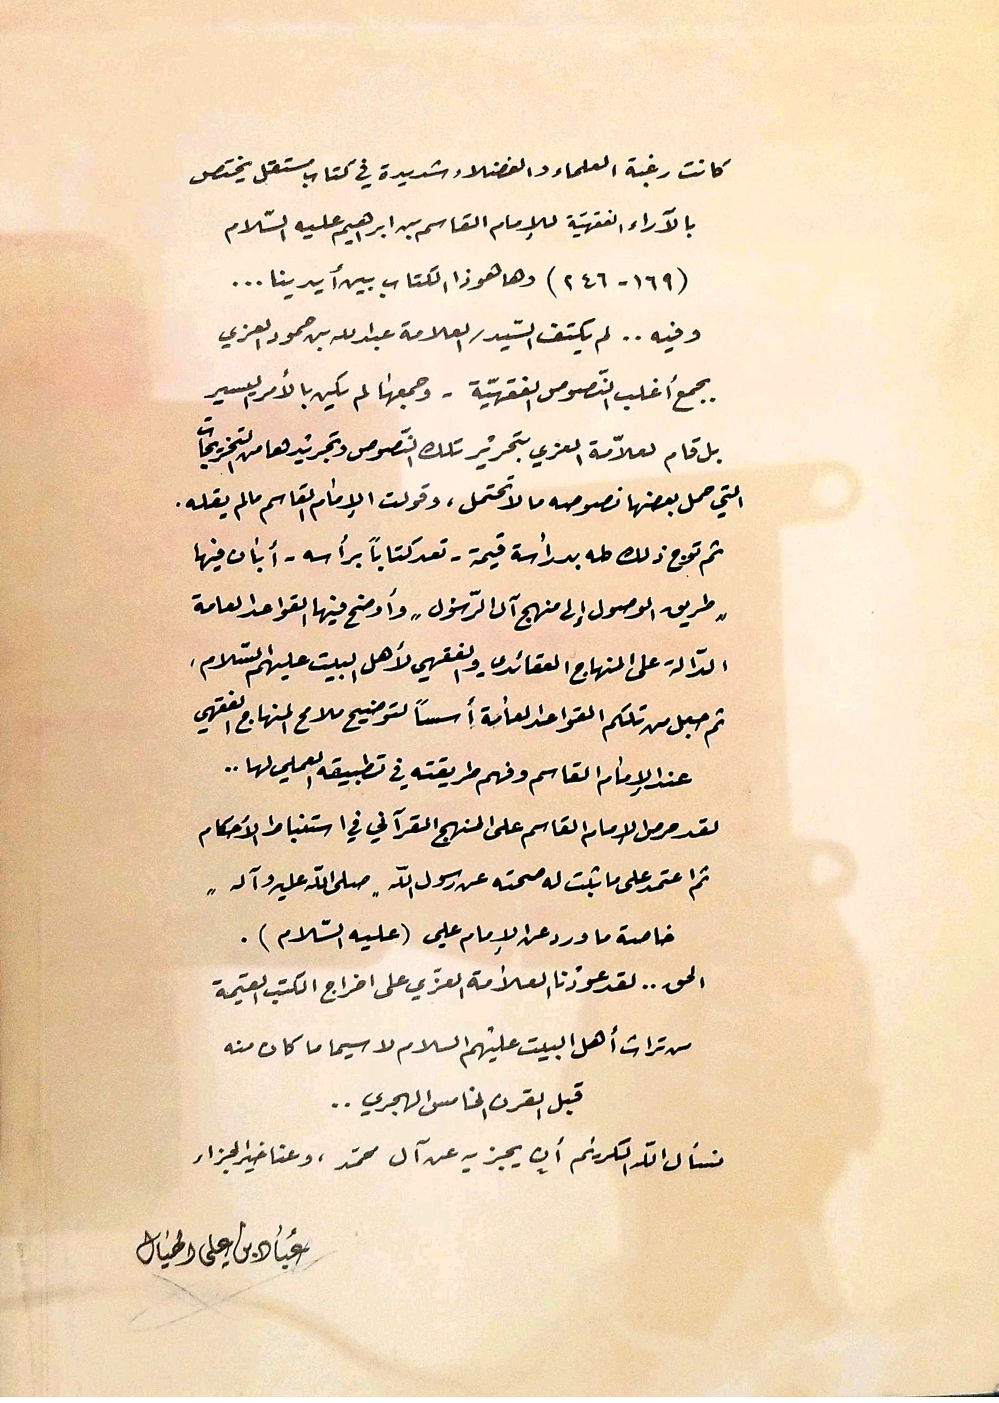 كانت رغبة العلماء والفضلاء شديدة في كتاب مستقل يختص
بالآراء الفقهيّة للإمام القاسم بن ابراهيم عليه السّلام
(١٦٩ - ٢٤٦) وها هو ذا الكتاب بين أيدينا ...
وفيه .. لم يكتف السّيد / العلامة عبدالله بن حمود العزي
بجمع أغلب النّصوص الفقهيّة - وجمعها لم يكن بالأمر اليسير
بل قام العلاّمة العزي بتحرير تلك النّصوص وتجريدها من التخريجات
التي حمل بعضها نصوصه ما لا تحتمل ، وقولت الإمام القاسم مالم يقله .
ثم توج ذلك كله بدراسة قيمة - تعد كتاباً برأسه - أبان فيها
" طريق الوصول إلى منهج آل الرّسول " وأوضح فيها القواعد العامة
الدّالة على المنهاج العقائدي والفقهي لأهل البيت عليهم السّلام ،
ثم جعل من تلكم القواعد العامة أسساً لتوضيح ملامح المنهاج الفقهي
عند الإمام القاسم وفهم طريقته في تطبيقه العملي لها ..
لقد حرص الإمام القاسم على المنهج القرآني في استنباط الأحكام
ثم اعتمد على ما ثبت له صحته عن رسول الله " صلى الله عليه وآله "
خاصة ما ورد عن الإمام علي (عليه السّلام ) .
الحق .. لقد عوّدنا العلاّمة العزّي على اخراج الكتب القيّمة
من تراث أهل البيت عليهم السلام لا سيما ما كان منه
قبل القرن الخامس الهجري ..
نسأل الله الكريم أن يجزيه عن آل محمّد ، وعنا خير الجزاء
عباد بن علي الهيال